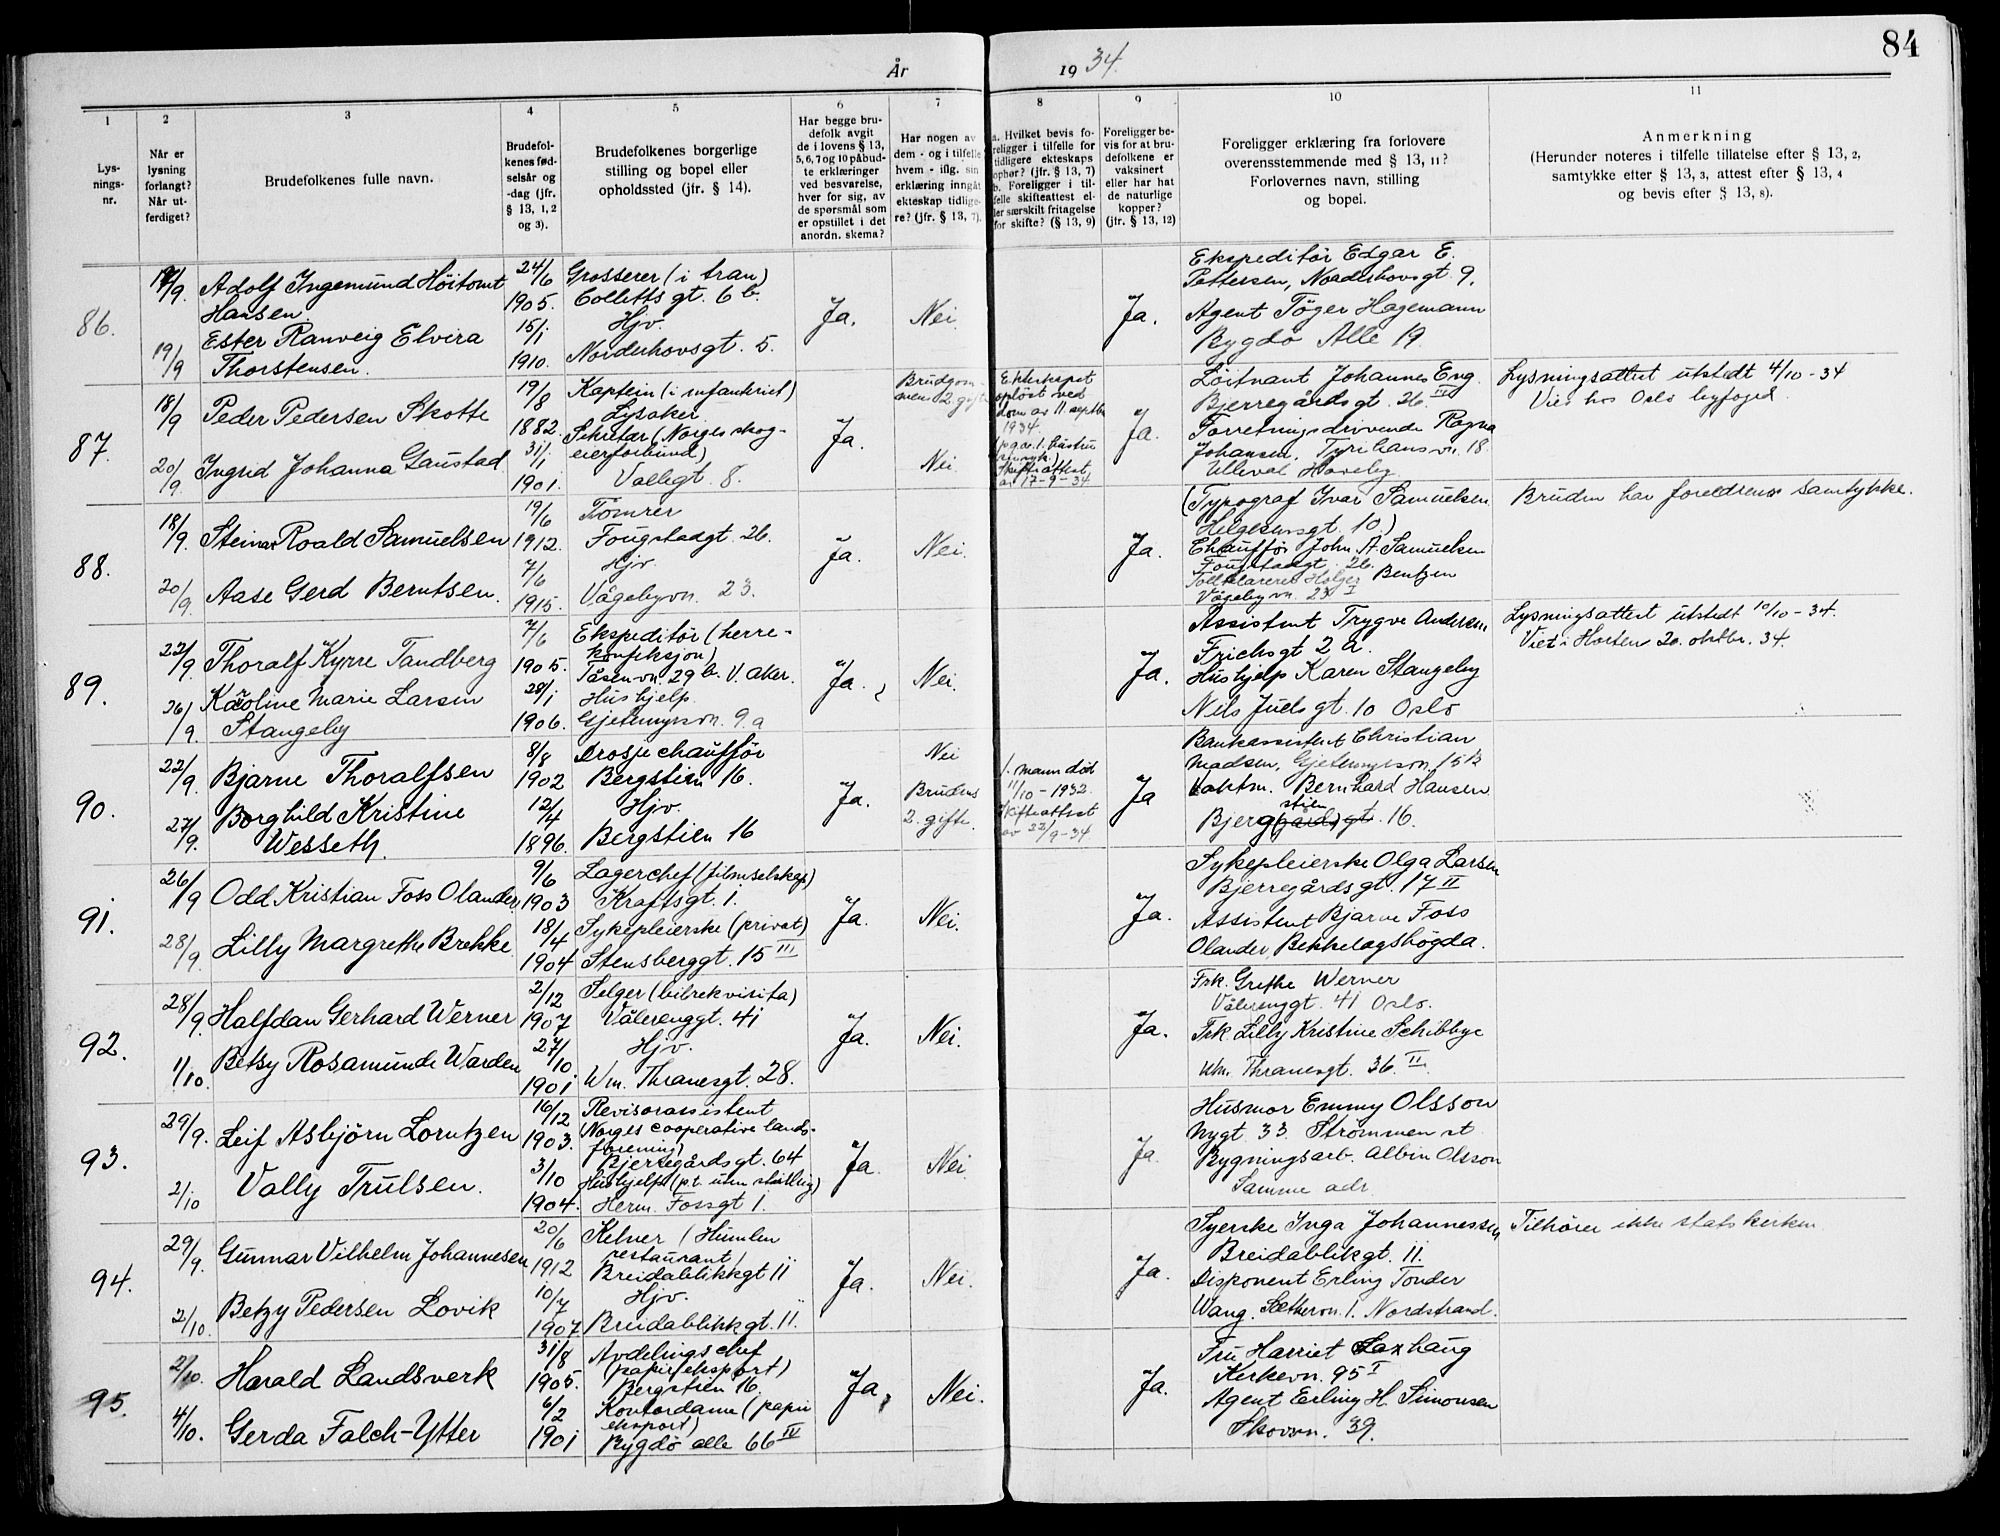 84
År 1934.
1
Lys-
nings-
nr.
2
Når er
lysning
forlangt?
Når ut-
ferdiget?
3
Brudefolkenes fulle navn.
4
Brudefol-
kenes fød-
selsår og
-dag (jfr.
§ 13, 1, 2
og 3).
5
Brudefolkenes borgerlige
stilling og bopel eller
opholdssted (jfr. § 14).
6
Har begge bru-
defolk avgit
de i lovens § 13,
5, 6, 7 og 10 påbud-
te erklæringer
ved besvarelse,
hver for sig, av
de spørsmål som
er opstillet i det
anordn. skema?
7
Har nogen av
dem - og i tilfelle
hvem - iflg. sin
erklæring inngått
ekteskap tidlige-
re? (jfr. § 13, 7).
8
a. Hvilket bevis fo-
religger i tilfelle for
tidligere ekteskaps
ophør? (jfr. § 13, 7)
b. Foreligger i til-
felle skifteattest el-
ler særskilt fritagelse
for skifte? (§ 13, 9)
9
Foreligger be-
vis for at bru-
defolkene er
vaksinert
eller har hat
de naturlige
kopper?
(jfr. § 13, 12)
10
Foreligger erklæring fra forlovere
overensstemmende med § 13, 11?
Forlovernes navn, stilling
og bopel.
11
Anmerkning
(Herunder noteres i tilfelle tillatelse efter § 13, 2,
samtykke efter § 13, 3, attest efter § 13, 4
og bevis efter § 13, 8).
86.
19/9
Adolf Ingemund Höitomt
Hansen.
Ester Ranveig Elvira
Thorstensen.
24/6
1905.
15/1
1910.
Grosserer (i tran)
Colletts gt. 6 b.
Hjv.
Norderhovsgt. 5.
Ja.
Nei.
Ja.
Ekspeditör Edgar E.
Pettersen, Norderhovsgt 9.
Agent Töger Hagemann
Bygdö Alle 19.
87.
18/9
20/9.
Peder Pedersen Skotte
Ingrid Johanna Gaustad
19/8
1882.
31/1
1901.
Kaptein (i infanteriet)
Lysaker
Sekretær (Norges skog-
eierforbund)
Vallegt. 8.
Ja.
Brudgom-
mens 2. gifte
Nei.
Ekteskapet
opløst ved
dom av 11. septbr
1934.
Skifteattest
av 17-9-34
Ja.
Löitnant Johannes Eng.
Bjerregårdsgt. 26. III
Forretningsdrivende Ragna
Johansen, Tyrihansvn. 18.
Ullevål Haveby
Lysningsattest utstedt 4/10-34
Viet hos Oslo byfoged.
88.
18/9.
20/9.
Steinar Roald Samuelsen
Aase Gerd Berntsen.
19/6
1912.
7/6
1915.
Tömrer
Fougstadgt. 26.
Hjv.
Vågebyvn. 23.
Ja.
Nei.
Ja.
(Typograf Ivar Samuelsen
Helgesensgt. 10.)
Chaufför John A. Samuelsen
Fougstadgt. 26.
Tollklarerer Holger Bentzen
Vågebyvn. 23 I
Bruden har foreldrenes samtykke.
89.
22/9
26/9.
Thoralf Kyrre Tandberg
Karoline Marie Larsen
Stangeby
7/6
1905.
28/1
1906.
Ekspeditör (herre-
konfeksjon)
Tåsenvn. 29 b. V. Aker.
Hushjelp
Gjetemyrsvn. 9a
Ja.
Nei.
Ja.
Assistent Trygve Andersen,
Frichsgt 2 a.
Hushjelp Karen Stangeby
Nils Juelsgt. 10 Oslo
Lysningsattest utstedt 10/10-34.
Viet i Horten 20. oktbr. 34.
90.
22/9.
27/9.
Bjarne Thoralfsen
Borghild Kristine
Wesseth.
8/8
1902
12/4
1896.
Drosjechaufför
Bergstien 16.
Hjv.
Bergstien 16
Ja.
Nei
Brudens
2. gifte.
1. mann död
11/10-1932.
Skifteattest
av 22/9-34
Ja
Bankassistent Christian
Madsen, Gjetemyrsvn. 15 B
Vaktm. Bernhard Hansen
stien
Bjerggårdsgt. 16.
91.
26/9
28/9.
Odd Kristian Foss Olander
Lilly Margrethe Brekke
9/6
1903
18/4
1904
Lagerchef (filmselskap)
Kraftsgt. 1.
Sykepleierske (privat)
Stensberggt. 15 III
Ja.
Nei.
Ja.
Sykepleierske Olga Larsen
Bjerregårdsgt. 17 II
Assistent Bjarne Foss
Olander, Bekkelagshögda.
92.
28/9.
1/10.
Halfdan Gerhard Werner
Betsy Rosamunde Warden
2/12
1907
27/10
1901
Selger (bilrekvisita)
Vålerenggt. 41
Hjv.
Wm. Thranesgt. 28.
Ja.
Nei.
Ja.
Frk. Grethe Werner
Vålerenggt. 41 Oslo.
Frk. Lilly Kristine Schibbye
Wm. Thranesgt. 36. II
93.
29/9.
2/10
Leif Asbjörn Lorntzen
Vally Trulsen.
16/12
1903.
3/10
1904.
Revisorassistent
(Norges cooperative lands-
forening)
Bjerregårdsgt. 64
Hushjelp (p.t. uten stilling)
Herm. Fossgt 1.
Ja.
Nei.
Ja.
Husmor Emmy Olsson
Nygt. 33. Strömmen st.
Bygningsarb. Albin Olsson
Samme adr.
94.
29/9.
2/10.
Gunnar Vilhelm Johannesen
Betzy Pedersen Lovik
20/6
1912
10/7
1907
Kelner (Humlen
restaurant)
Breidablikkgt 11
Hjv.
Breidablikkgt. 11.
Ja.
Nei.
Ja.
Syerske Inga Johannessen
Breidablikgt. 11.
Disponent Erling Tonder
Wang. Sætervn. 1. Nordstrand.
Tilhörer ikke statskirken
95.
2/10.
4/10.
Harald Landsverk
Gerda Falch-Ytter
31/8
1905.
6/2
1901
Avdelingschef
(papireksport)
Bergstien 16.
Kontordame (papir
eksport)
Bygdö alle 66 IV
Ja.
Nei.
Ja.
Fru Harriet Laxhaug
Kirkevn. 95 I
Agent Erling H. Simonsen
Skovvn. 39.